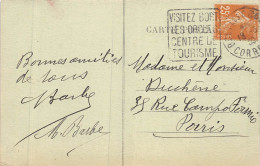 VISITEZ BORT
LES ORGUES
CENTRE DE
TOURISME
CARTE
Bonnes amitiés
de tous
Marthe
M. Barbe
Madame et Monsieur
Duchêne
35 Rue Campo Formio
Paris